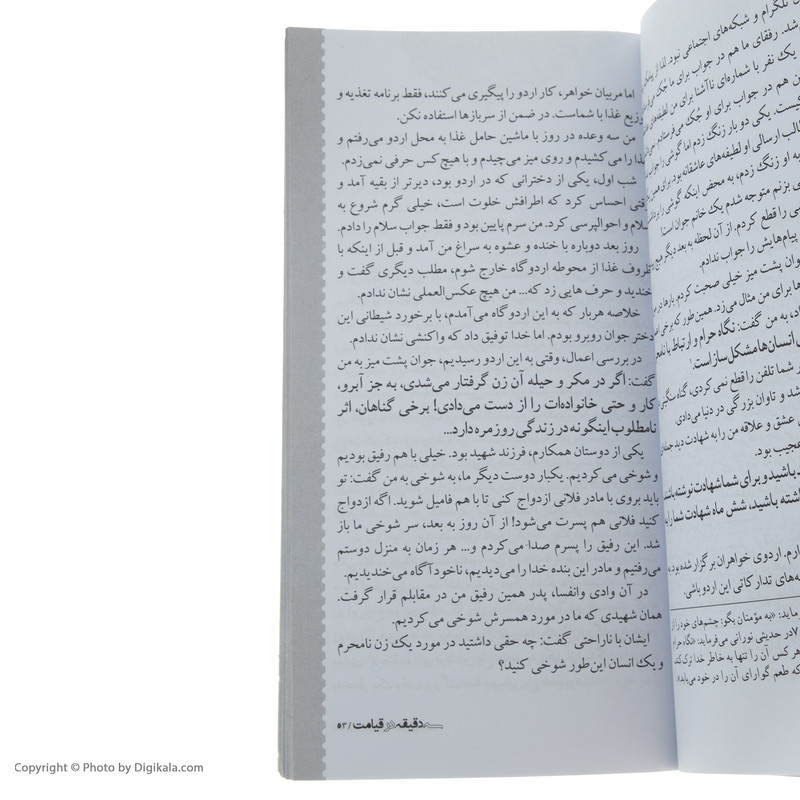 تلگرام و شبکه‌های اجتماعی نبود. لذا از
شد. رفقای ما هم در جواب برای ما جُک می
یک نفر با شماره‌ای ناآشنا برای من لطیفه‌های
هم در جواب برای او جُک می‌فرستادم
یکی دو بار زنگ زدم اما گوشی را جواب
ارسالی او لطیفه‌های عاشقانه بود. برای همین
به او زنگ زدم، به محض اینکه گوشی را
بزنم متوجه شدم یک خانم جوان است!
را قطع کردم. از آن لحظه به بعد دیگر هیچ
پیام‌هایش را جواب ندادم.
جوان پشت میز خیلی صحبت کردم. بارها در
برای من مثال می‌زد. همین‌طور که برخی
به من گفت: نگاه حرام و ارتباط با
انسان‌ها مشکل‌ساز است.
شما تلفن را قطع نمی کردی، گناه سنگینی
و تاوان بزرگی در دنیا می‌دادی.
عشق و علاقه من را به شهادت دید جمله‌ای
عجیب بود.
باشید و برای شما شهادت نوشته باشند
داشته باشید، شش ماه شهادت شما را به
اردوی خواهران برگزار شده بود. به
تدارکاتی این اردو باشی.
«به مؤمنان بگو: چشم‌های خود را از
در حدیثی نورانی می‌فرماید: «نگاه حرام
هر کس آن را تنها به خاطر خدا ترک کند،
که طعم گوارای آن را در خود می‌یابد».
اما مربیان خواهر، کار اردو را پیگیری می‌کنند، فقط برنامه تغذیه و
توزیع غذا با شماست. در ضمن از سربازها استفاده نکن.
من سه وعده در روز با ماشین حامل غذا به محل اردو می‌رفتم و
غذا را می‌کشیدم و روی میز می‌چیدم و با هیچ کس حرفی نمی‌زدم.
شب اول، یکی از دخترانی که در اردو بود، دیرتر از بقیه آمد و
وقتی احساس کرد که اطرافش خلوت است، خیلی گرم شروع به
سلام و احوالپرسی کرد. من سرم پایین بود و فقط جواب سلام را دادم.
روز بعد دوباره با خنده و عشوه به سراغ من آمد و قبل از اینکه با
ظروف غذا از محوطه اردوگاه خارج شوم، مطلب دیگری گفت و
خندید و حرف هایی زد که... من هیچ عکس‌العملی نشان ندادم.
خلاصه هربار که به این اردوگاه می‌آمدم، با برخورد شیطانی این
دختر جوان روبرو بودم. اما خدا توفیق داد که واکنشی نشان ندادم.
در بررسی اعمال، وقتی به این اردو رسیدیم، جوان پشت میز به من
گفت: اگر در مکر و حیله آن زن گرفتار می‌شدی، به جز آبرو،
کار و حتی خانواده‌ات را از دست می‌دادی! برخی گناهان، اثر
نامطلوب اینگونه در زندگی روزمره دارد...
یکی از دوستان همکارم، فرزند شهید بود. خیلی با هم رفیق بودیم
و شوخی می کردیم. یکبار دوست دیگر ما، به شوخی به من گفت: تو
باید بروی با مادر فلانی ازدواج کنی تا با هم فامیل شوید. اگه ازدواج
کنید فلانی هم پسرت می‌شود! از آن روز به بعد، سر شوخی ما باز
شد. این رفیق را پسرم صدا می‌کردم و... هر زمان به منزل دوستم
می‌رفتیم و مادر این بنده خدا را می‌دیدیم، ناخودآگاه می‌خندیدیم.
در آن وادی وانفسا، پدر همین رفیق من در مقابلم قرار گرفت.
همان شهیدی که ما در مورد همسرش شوخی می‌کردیم.
ایشان با ناراحتی گفت: چه حقی داشتید در مورد یک زن نامحرم
و یک انسان این‌طور شوخی کنید؟
سه دقیقه در قیامت / ۵۳
Copyright © Photo by Digikala.com